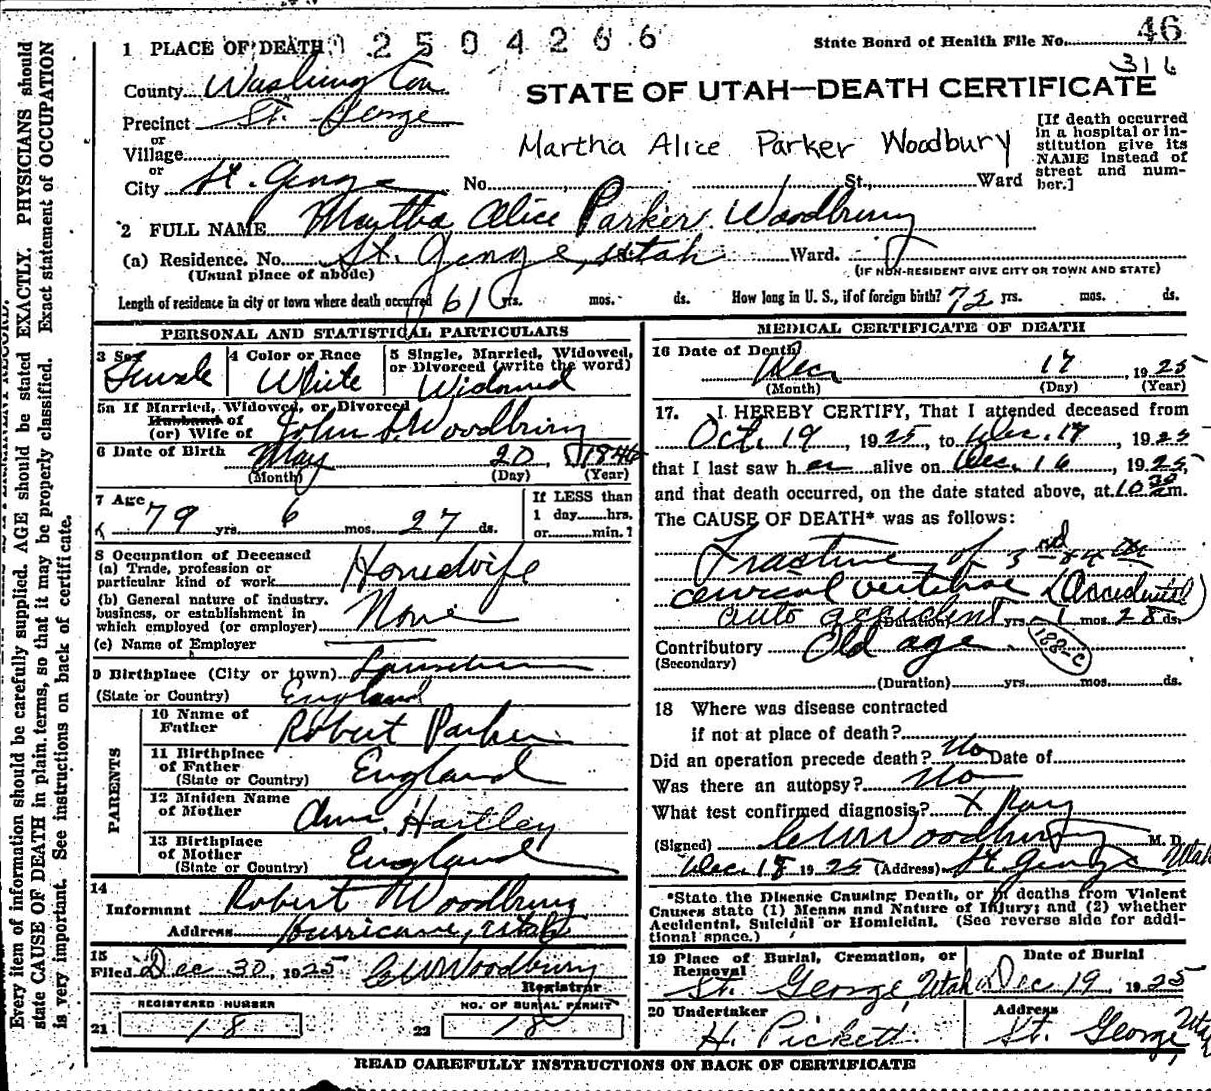 1 PLACE OF DEATH
2504266
State Board of Health File No. 46
316
County Washington
STATE OF UTAH—DEATH CERTIFICATE
Precinct St. George
or
Village
or
City St. George No. St., Ward
Martha Alice Parker Woodbury
[If death occurred in a hospital or institution give its NAME instead of street and number.]
2 FULL NAME Martha Alice Parker Woodbury
(a) Residence. No. St. George, Utah Ward.
(Usual place of abode)
(IF NON-RESIDENT GIVE CITY OR TOWN AND STATE)
Length of residence in city or town where death occurred 61 yrs. mos. ds. How long in U. S., if of foreign birth? 72 yrs. mos. ds.
PERSONAL AND STATISTICAL PARTICULARS
3 Sex Female
4 Color or Race White
5 Single, Married, Widowed, or Divorced (write the word) Widowed
5a If Married, Widowed, or Divorced
Husband of
(or) Wife of John S. Woodbury
6 Date of Birth May 20, 1846
(Month) (Day) (Year)
7 Age 79 yrs. 6 mos. 27 ds.
If LESS than
1 day hrs.
or min. ?
8 Occupation of Deceased
(a) Trade, profession or
particular kind of work Housewife
(b) General nature of industry,
business, or establishment in
which employed (or employer) None
(c) Name of Employer
9 Birthplace (City or town)
(State or Country) England
PARENTS
10 Name of
Father Robert Parker
11 Birthplace
of Father
(State or Country) England
12 Maiden Name
of Mother Ann Hartley
13 Birthplace
of Mother
(State or Country) England
14
Informant Robert Woodbury
Address Hurricane, Utah
15
Filed Dec 30, 1925 Woodbury
Registrar
REGISTERED NUMBER
21 18
NO. OF BURIAL PERMIT
22 18
MEDICAL CERTIFICATE OF DEATH
16 Date of Death
Dec 17, 1925
(Month) (Day) (Year)
17. I HEREBY CERTIFY, That I attended deceased from
Oct. 19, 1925, to Dec. 17, 1925
that I last saw her alive on Dec. 16, 1925,
and that death occurred, on the date stated above, at 10 30 am.
The CAUSE OF DEATH* was as follows:
Fracture of 3rd & 4th
cervical vertebrae (Accidental)
auto accident (Duration) yrs. 1 mos. 28 ds.
Contributory Old age 188-c
(Secondary)
(Duration) yrs. mos. ds.
18 Where was disease contracted
if not at place of death?
Did an operation precede death? No Date of
Was there an autopsy? No
What test confirmed diagnosis? X Ray
(Signed) Woodbury M. D.
Dec. 18 1925 (Address) St. George Utah
*State the Disease Causing Death, or in deaths from Violent
Causes state (1) Means and Nature of Injury; and (2) whether
Accidental, Suicidal or Homicidal. (See reverse side for addi-
tional space.)
19 Place of Burial, Cremation, or
Removal
St. George, Utah
Date of Burial
Dec 19, 1925
20 Undertaker
H. Pickett.
Address
St. George, Utah
READ CAREFULLY INSTRUCTIONS ON BACK OF CERTIFICATE
Every item of information should be carefully supplied. AGE should be stated EXACTLY. PHYSICIANS should
state CAUSE OF DEATH in plain terms, so that it may be properly classified. Exact statement of OCCUPATION
is very important. See instructions on back of certificate.